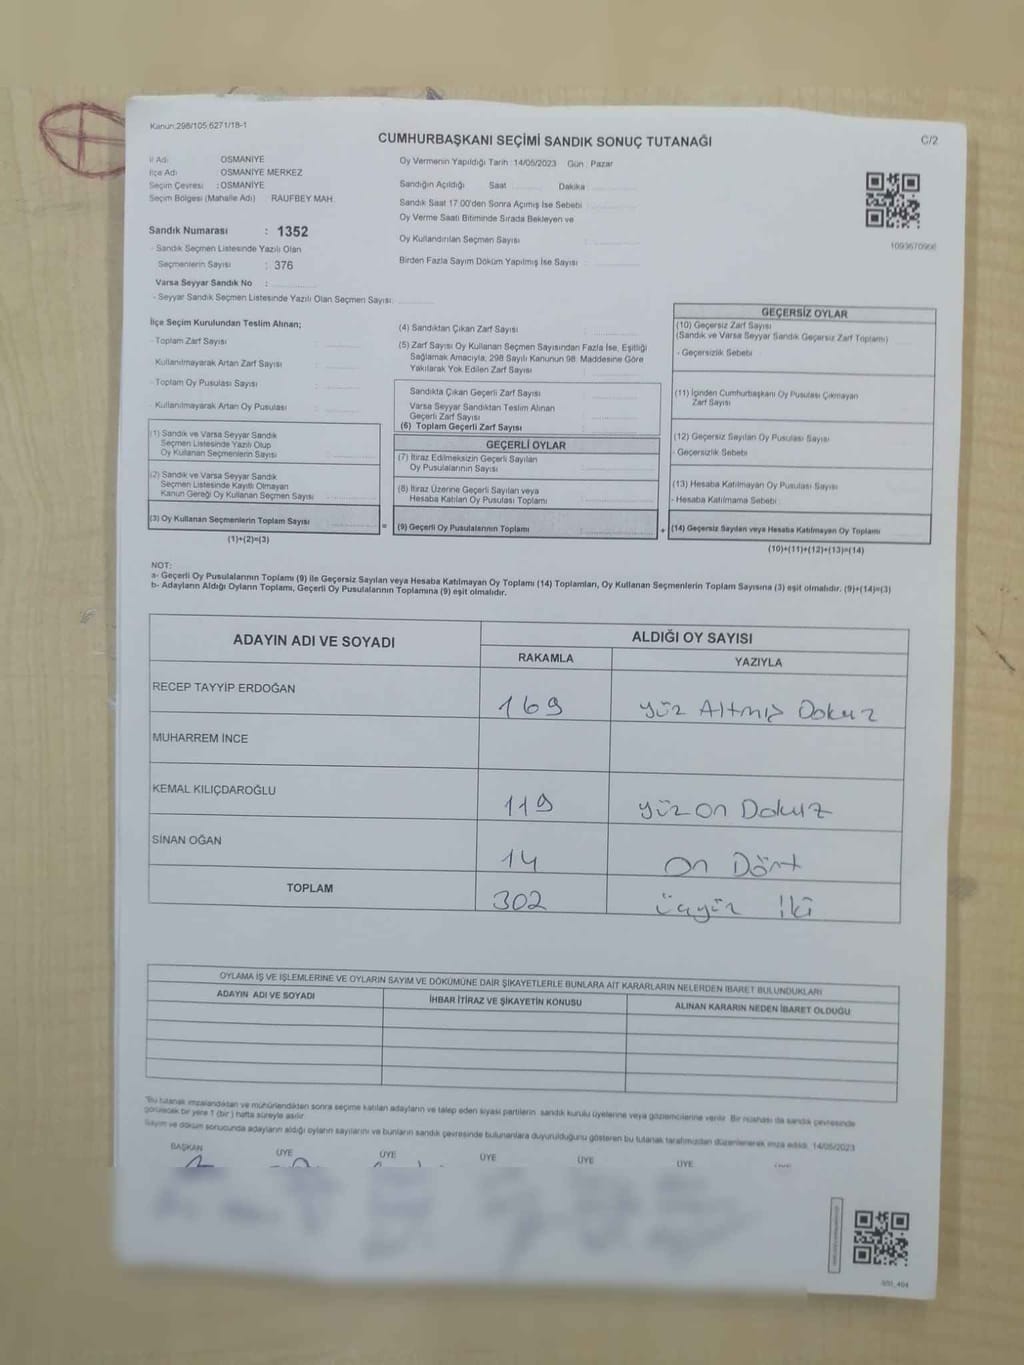 Kanun:298/105,6271/18-1
CUMHURBAŞKANI SEÇİMİ SANDIK SONUÇ TUTANAĞI
C/2
İl Adı OSMANİYE
İlçe Adı OSMANİYE MERKEZ
Seçim Çevresi : OSMANİYE
Seçim Bölgesi (Mahalle Adı) RAUFBEY MAH.
Sandık Numarası : 1352
- Sandık Seçmen Listesinde Yazılı Olan
Seçmenlerin Sayısı : 376
Varsa Seyyar Sandık No :
- Seyyar Sandık Seçmen Listesinde Yazılı Olan Seçmen Sayısı:
Oy Vermenin Yapıldığı Tarih :14/05/2023 Gün : Pazar
Sandığın Açıldığı Saat Dakika
Sandık Saat 17.00'den Sonra Açımış İse Sebebi
Oy Verme Saati Bitiminde Sırada Bekleyen ve
Oy Kullandırılan Seçmen Sayısı :
Birden Fazla Sayım Döküm Yapılmış İse Sayısı :
İlçe Seçim Kurulundan Teslim Alınan;
- Toplam Zarf Sayısı :
- Kullanılmayarak Artan Zarf Sayısı :
- Toplam Oy Pusulası Sayısı :
- Kullanılmayarak Artan Oy Pusulası :
(1) Sandık ve Varsa Seyyar Sandık
Seçmen Listesinde Yazılı Olup
Oy Kullanan Seçmenlerin Sayısı :
(2) Sandık ve Varsa Seyyar Sandık
Seçmen Listesinde Kayıtlı Olmayan
Kanun Gereği Oy Kullanan Seçmen Sayısı :
(3) Oy Kullanan Seçmenlerin Toplam Sayısı
(1)+(2)=(3)
=
(4) Sandıktan Çıkan Zarf Sayısı :
(5) Zarf Sayısı Oy Kullanan Seçmen Sayısından Fazla İse, Eşitliği
Sağlamak Amacıyla, 298 Sayılı Kanunun 98. Maddesine Göre
Yakılarak Yok Edilen Zarf Sayısı :
Sandıkta Çıkan Geçerli Zarf Sayısı :
Varsa Seyyar Sandıktan Teslim Alınan
Geçerli Zarf Sayısı :
(6) Toplam Geçerli Zarf Sayısı :
GEÇERLİ OYLAR
(7) İtiraz Edilmeksizin Geçerli Sayılan
Oy Pusulalarının Sayısı :
(8) İtiraz Üzerine Geçerli Sayılan veya
Hesaba Katılan Oy Pusulası Toplamı :
(9) Geçerli Oy Pusulalarının Toplamı :
+
GEÇERSİZ OYLAR
(10) Geçersiz Zarf Sayısı
(Sandık ve Varsa Seyyar Sandık Geçersiz Zarf Toplamı)
- Geçersizlik Sebebi
(11) İçinden Cumhurbaşkanı Oy Pusulası Çıkmayan
Zarf Sayısı
(12) Geçersiz Sayılan Oy Pusulası Sayısı
- Geçersizlik Sebebi
(13) Hesaba Katılmayan Oy Pusulası Sayısı
- Hesaba Katılmama Sebebi :
(14) Geçersiz Sayılan veya Hesaba Katılmayan Oy Toplamı
(10)+(11)+(12)+(13)=(14)
NOT:
a- Geçerli Oy Pusulalarının Toplamı (9) ile Geçersiz Sayılan veya Hesaba Katılmayan Oy Toplamı (14) Toplamları, Oy Kullanan Seçmenlerin Toplam Sayısına (3) eşit olmalıdır. (9)+(14)=(3)
b- Adayların Aldığı Oyların Toplamı, Geçerli Oy Pusulalarının Toplamına (9) eşit olmalıdır.
ADAYIN ADI VE SOYADI ALDIĞI OY SAYISI
RAKAMLA YAZIYLA
RECEP TAYYİP ERDOĞAN 169 yüz Altmış Dokuz
MUHARREM İNCE
KEMAL KILIÇDAROĞLU 119 yüz on Dokuz
SİNAN OĞAN 14 on Dört
TOPLAM 302 üçyüz iki
OYLAMA İŞ VE İŞLEMLERİNE VE OYLARIN SAYIM VE DÖKÜMÜNE DAİR ŞİKAYETLERLE BUNLARA AİT KARARLARIN NELERDEN İBARET BULUNDUKLARI
ADAYIN ADI VE SOYADI İHBAR İTİRAZ VE ŞİKAYETİN KONUSU ALINAN KARARIN NEDEN İBARET OLDUĞU
"Bu tutanak imzalandıktan ve mühürlendikten sonra seçime katılan adayların ve talep eden siyasi partilerin sandık kurulu üyelerine veya gözlemcilerine verilir. Bir nüshası da sandık çevresinde
görülecek bir yere 1 (bir) hafta süreyle asılır.
Sayım ve döküm sonucunda adayların aldığı oyların sayılarını ve bunların sandık çevresinde bulunanlara duyurulduğunu gösteren bu tutanak tarafımızdan düzenlenerek imza edildi. 14/05/2023
BAŞKAN ÜYE ÜYE ÜYE ÜYE ÜYE